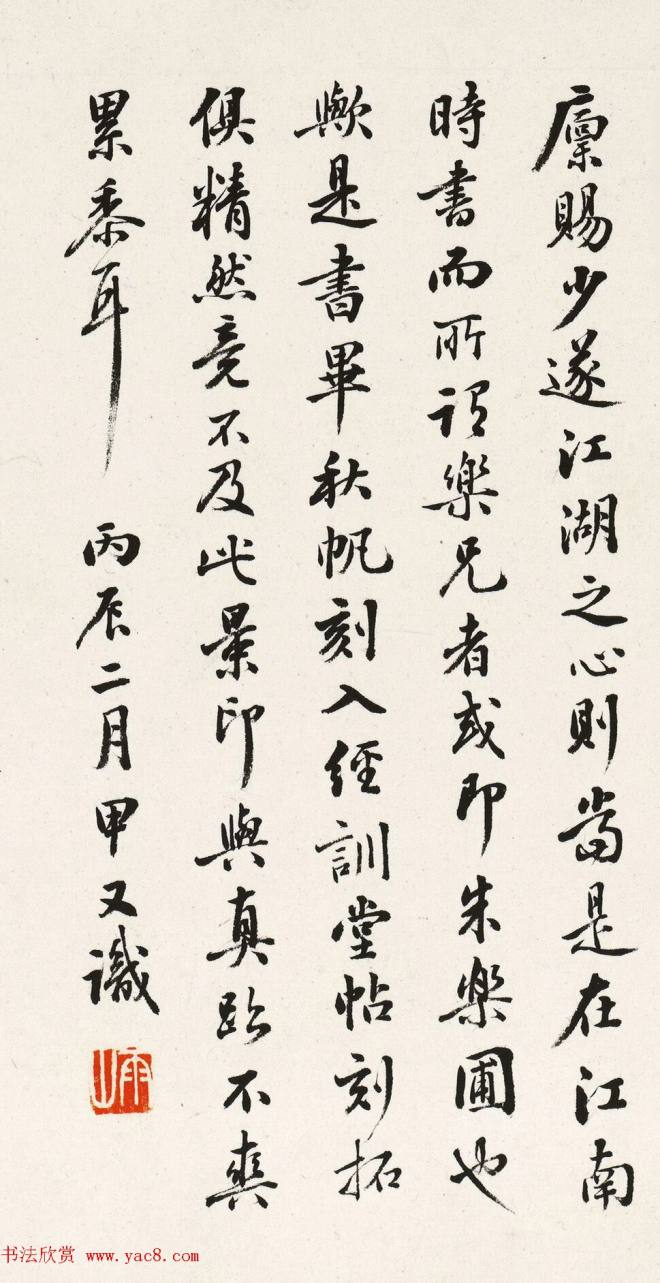 廩賜少遂江湖之心則當是在江南
時書而所謂樂兄者或即朱樂圃也
歟是書畢秋帆刻入經訓堂帖刻拓
俱精然竟不及此景印與真跡不爽
累黍耳
丙辰二月甲又識
书法欣赏 www.yac8.com